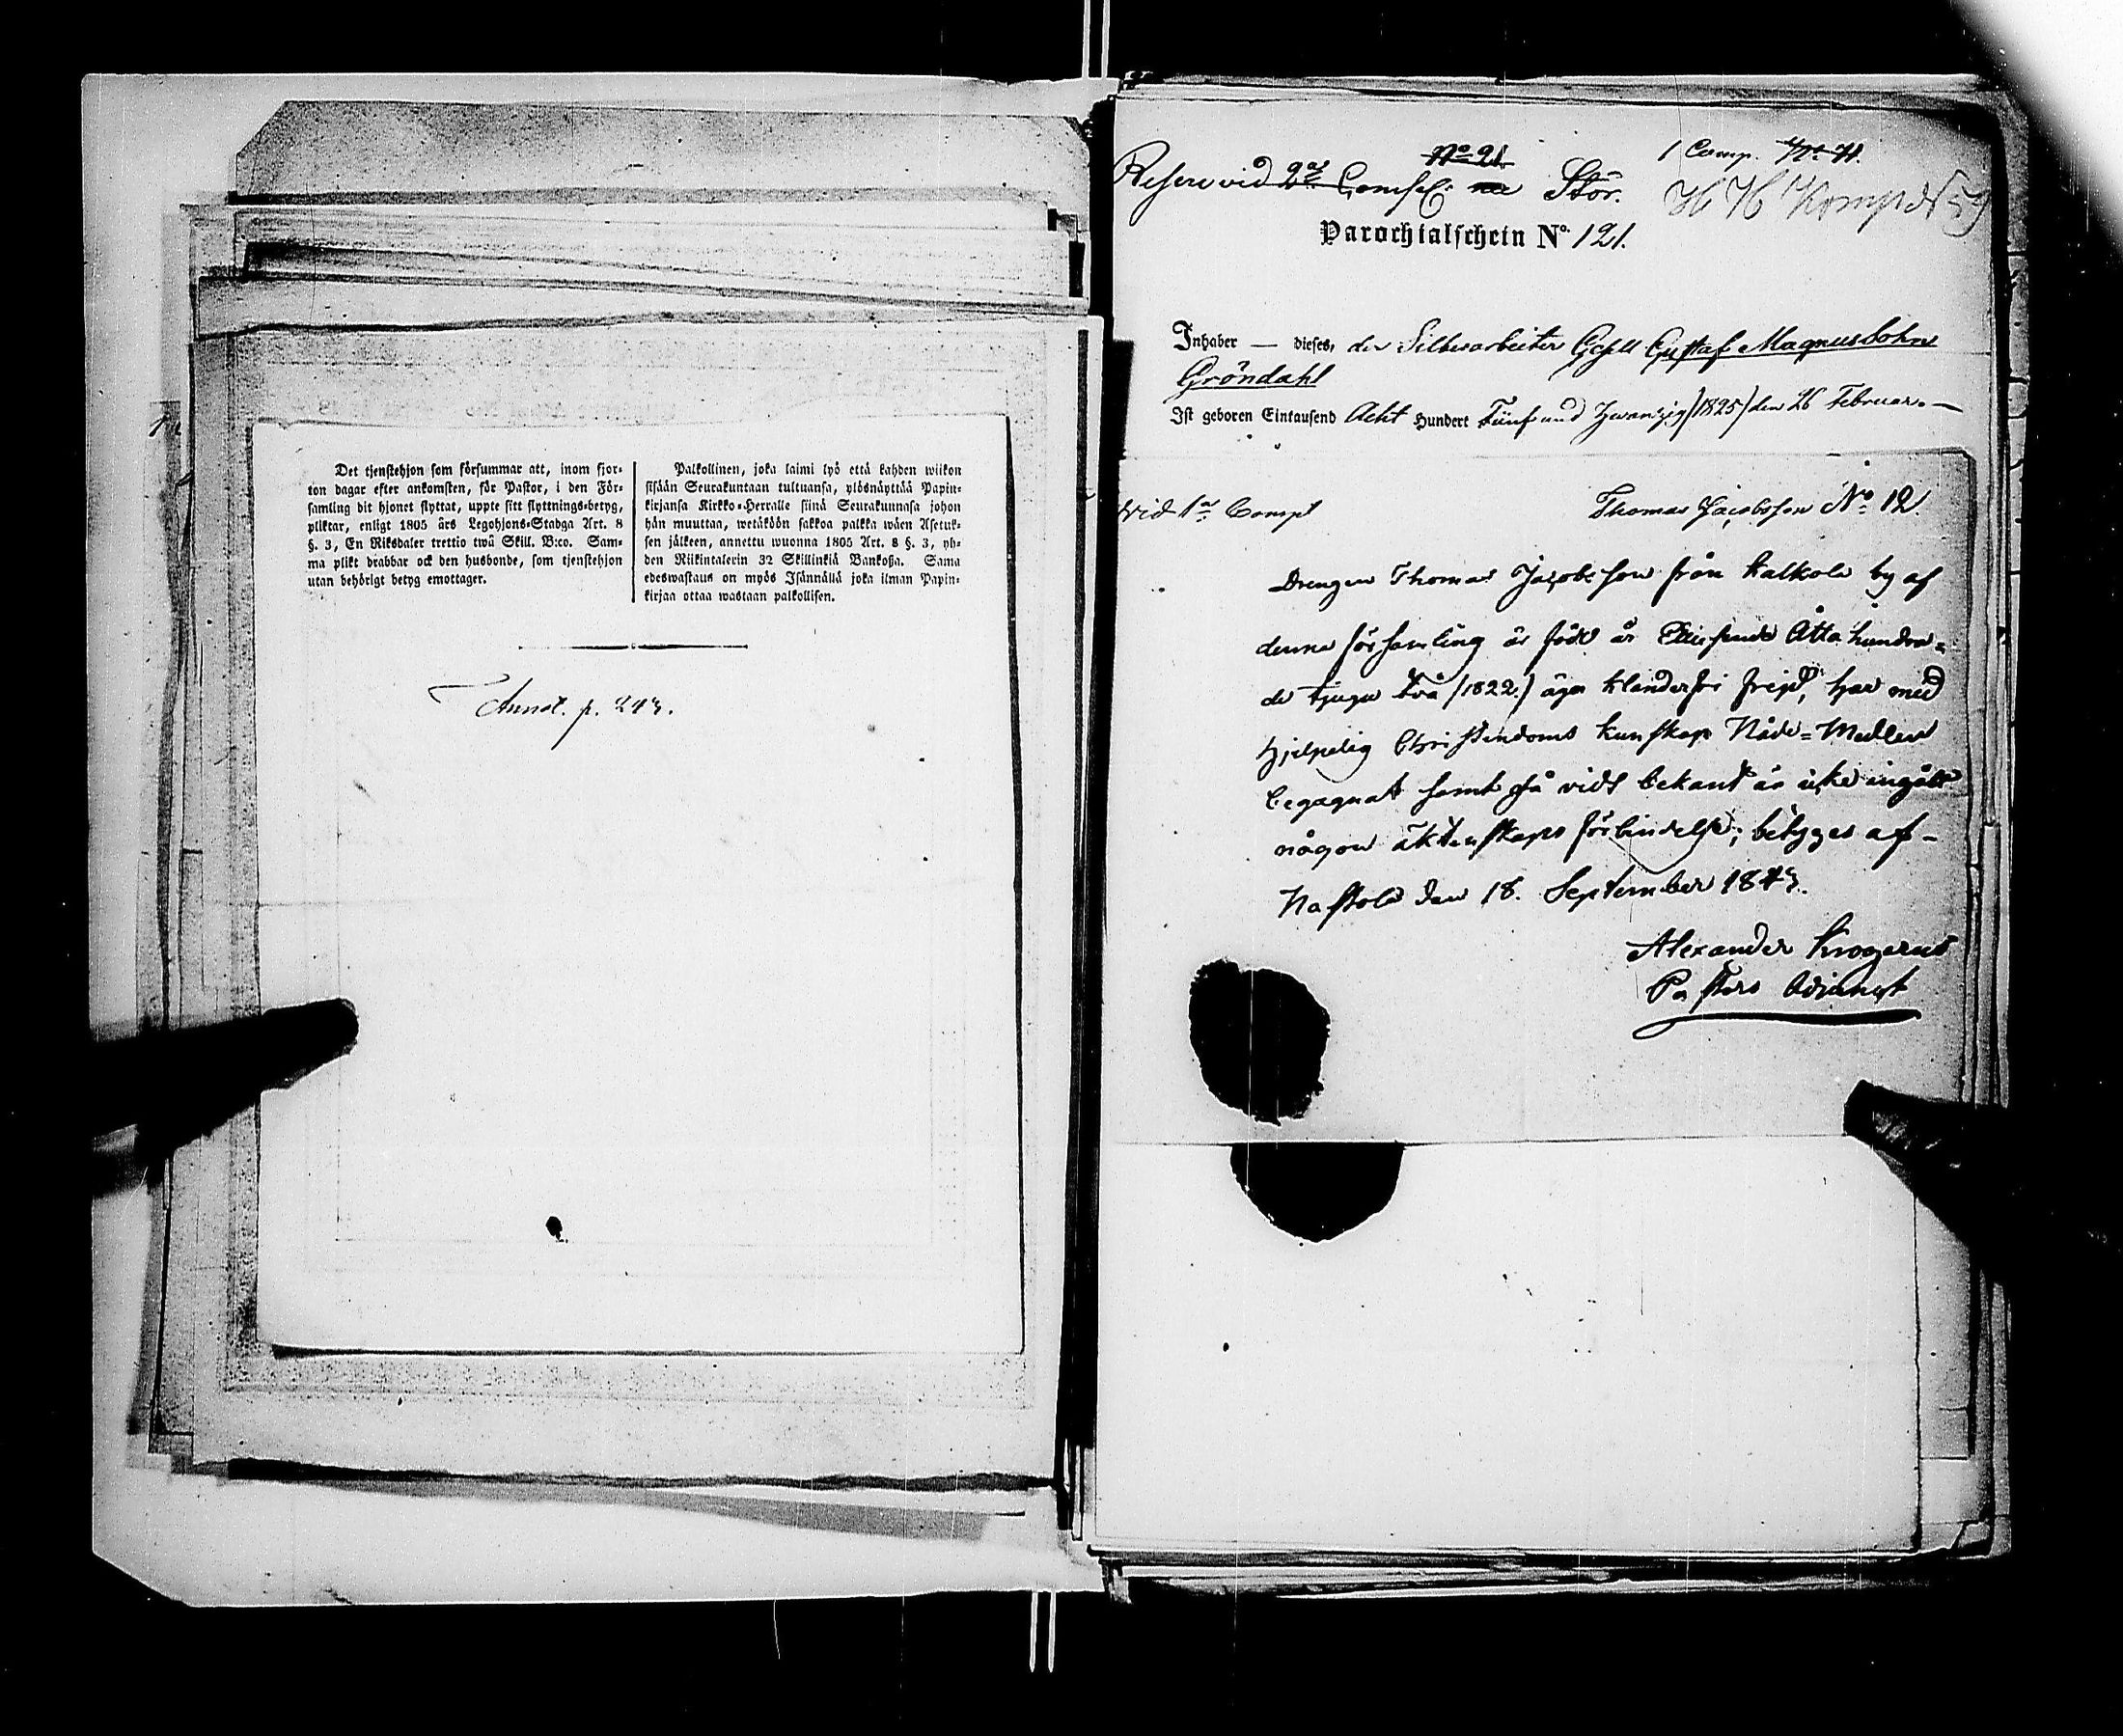 Det tjenstehjon som försummar att, inom fjor-
ton dagar efter ankomsten, för Pastor, i den För-
samling dit hjonet flyttat, uppte sitt flyttnings-betyg,
pliktar, enligt 1805 års Legohjons-Stadga Art. 8
§. 3, En Riksdaler trettio twå Skill. B:co. Sam-
ma plikt drabbar ock den husbonde, som tjenstehjon
utan behörigt betyg emottager.
Palkollinen, joka laimi lyö että kahden wiikon
sisään Seurakuntaan tultuansa, ylösnäyttää Papin-
kirjansa Kirkko-Herralle siinä Seurakunnasa johon
hän muuttaa, wetäköön sakkoa palkka wäen Asetuk-
sen jälkeen, annettu wuonna 1805 Art. 8 §. 3, yh-
den Riikintalerin 32 Skillinkiä Bankossa. Sama
edeswastaus on myös Isännällä joka ilman Papin-
kirjaa ottaa wastaan palkollisen.
Annot. p. 243.
No 21
1 Comp. No 71.
Reserv vid 2a Comp. Stör.
Komp
Parochialschein No. 121.
Inhaber — dieses, der Silberarbeiter Gesell Gustaf Magnussohn
Gröndahl
Ist geboren Eintausend Acht Hundert Fünf und Zwanzig (1825) den 26 Februar. —
vid 1a Comp
Thomas Jacobsson No 12.
Drengen Thomas Jacobsson från Kalkola by af
denna församling är född år Ettusende Åtta hundra-
de tjugu två (1822.) äger klanderfri frejd, har med
hjelpelig Christendoms kunskap Nåde-Medlen
begagnat samt så vidt bekant är icke ingått
någon äktenskaps förbindelse; betyges af -
Nastola den 18. September 1843.
Alexander Krogerus
Pastors Adjunct